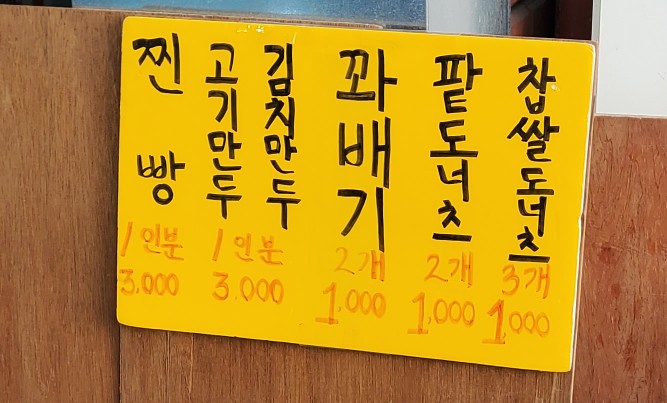 찐빵
1인분
3.000
고기만두
김치만두
1인분
3.000
꽈배기
2개
1.000
팥도너츠
2개
1.000
찹쌀도너츠
3개
1000